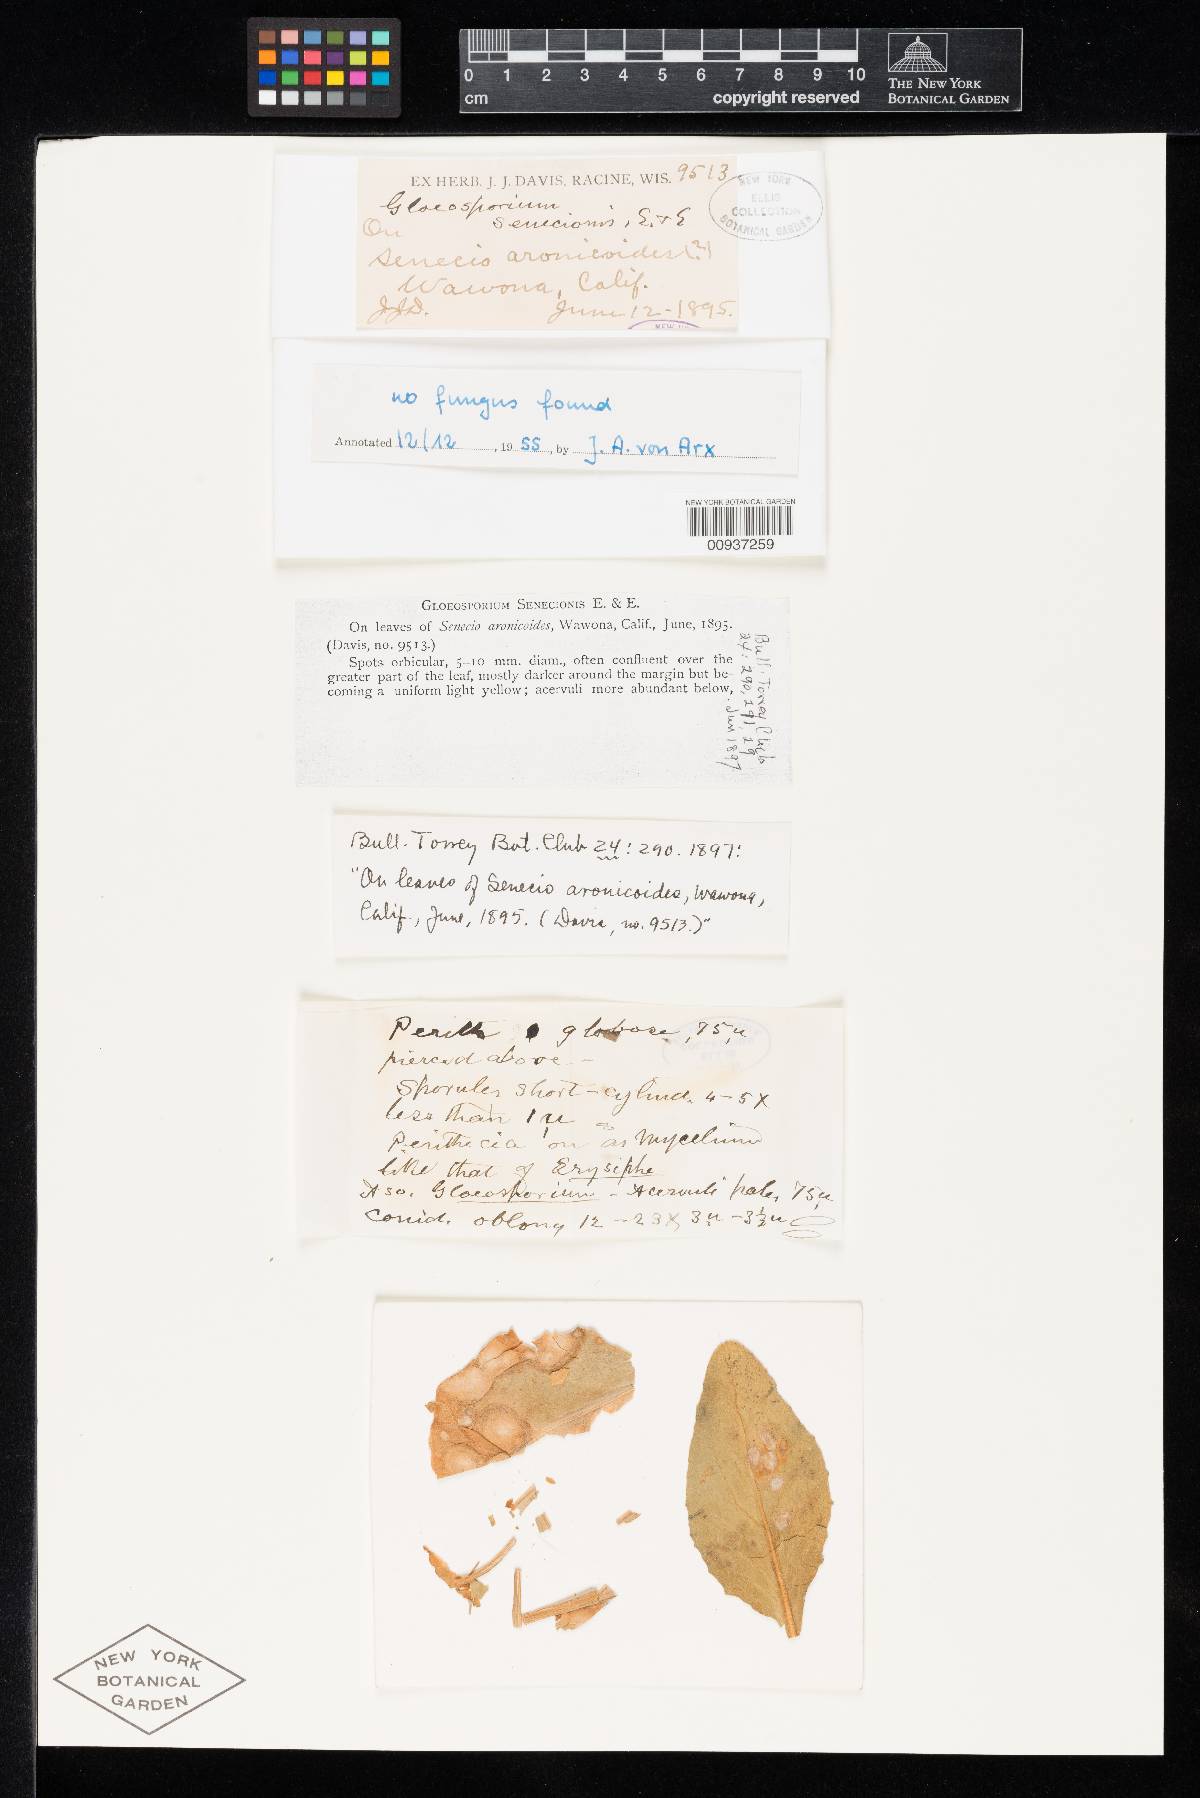 0 1 2 3 4 5 6 7 8 9 10
cm
copyright reserved
THE NEW YORK
BOTANICAL GARDEN
EX HERB. J. J. DAVIS, RACINE, WIS. 9513
NEW YORK
ELLIS
COLLECTION
BOTANICAL GARDEN
Gloeosporium
Senecionis, E. & E
On
Senecio aronicoides (?)
Wawona, Calif.
J.J.D. June 12-1895.
no fungus found
Annotated 12/12, 1955, by J. A. von Arx
NEW YORK BOTANICAL GARDEN
00937259
GLOEOSPORIUM SENECIONIS E. & E.
On leaves of Senecio aronicoides, Wawona, Calif., June, 1895.
(Davis, no. 9513.)
Spots orbicular, 5–10 mm. diam., often confluent over the
greater part of the leaf, mostly darker around the margin but be-
coming a uniform light yellow; acervuli more abundant below,
Bull. Torrey Club
24: 290, 291, 29
Jun 1897
Bull. Torrey Bot. Club 24: 290. 1897:
"On leaves of Senecio aronicoides, Wawona,
Calif., June, 1895. (Davis, no. 9513.)"
Perith globose, 75 u
pierced above -
Sporules short-cylind. 4-5 x
less than 1 u
Perithecia on as mycelium
like that of Erysiphe
Also. Gloeosporium - Acervuli pale, 75 u
Conid. oblong 12-23 x 3 u - 3 1/2 u
NEW YORK
BOTANICAL
GARDEN